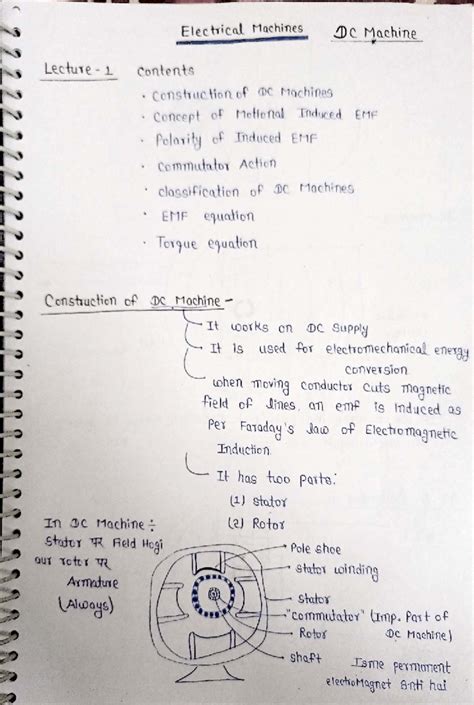 Electrical Machines DC Machine
Lecture - 1 Contents
• Construction of DC Machines
• Concept of Motional Induced EMF
• Polarity of Induced EMF
• Commutator Action
• classification of DC Machines
• EMF equation
• Torque equation
Construction of DC Machine -
It works on DC supply
It is used for electromechanical energy
conversion
when moving conductor cuts magnetic
field of lines, an emf is induced as
Per Faraday's law of Electromagnetic
Induction
It has two parts:
(1) stator
(2) Rotor
In DC Machine ÷
Stator पर Field Hogi
aur rotor पर
Armature
(Always)
Pole shoe
stator winding
stator
"commutator" (Imp. Part of
DC Machine)
Rotor
shaft
Isme permanent
electroMagnet hai